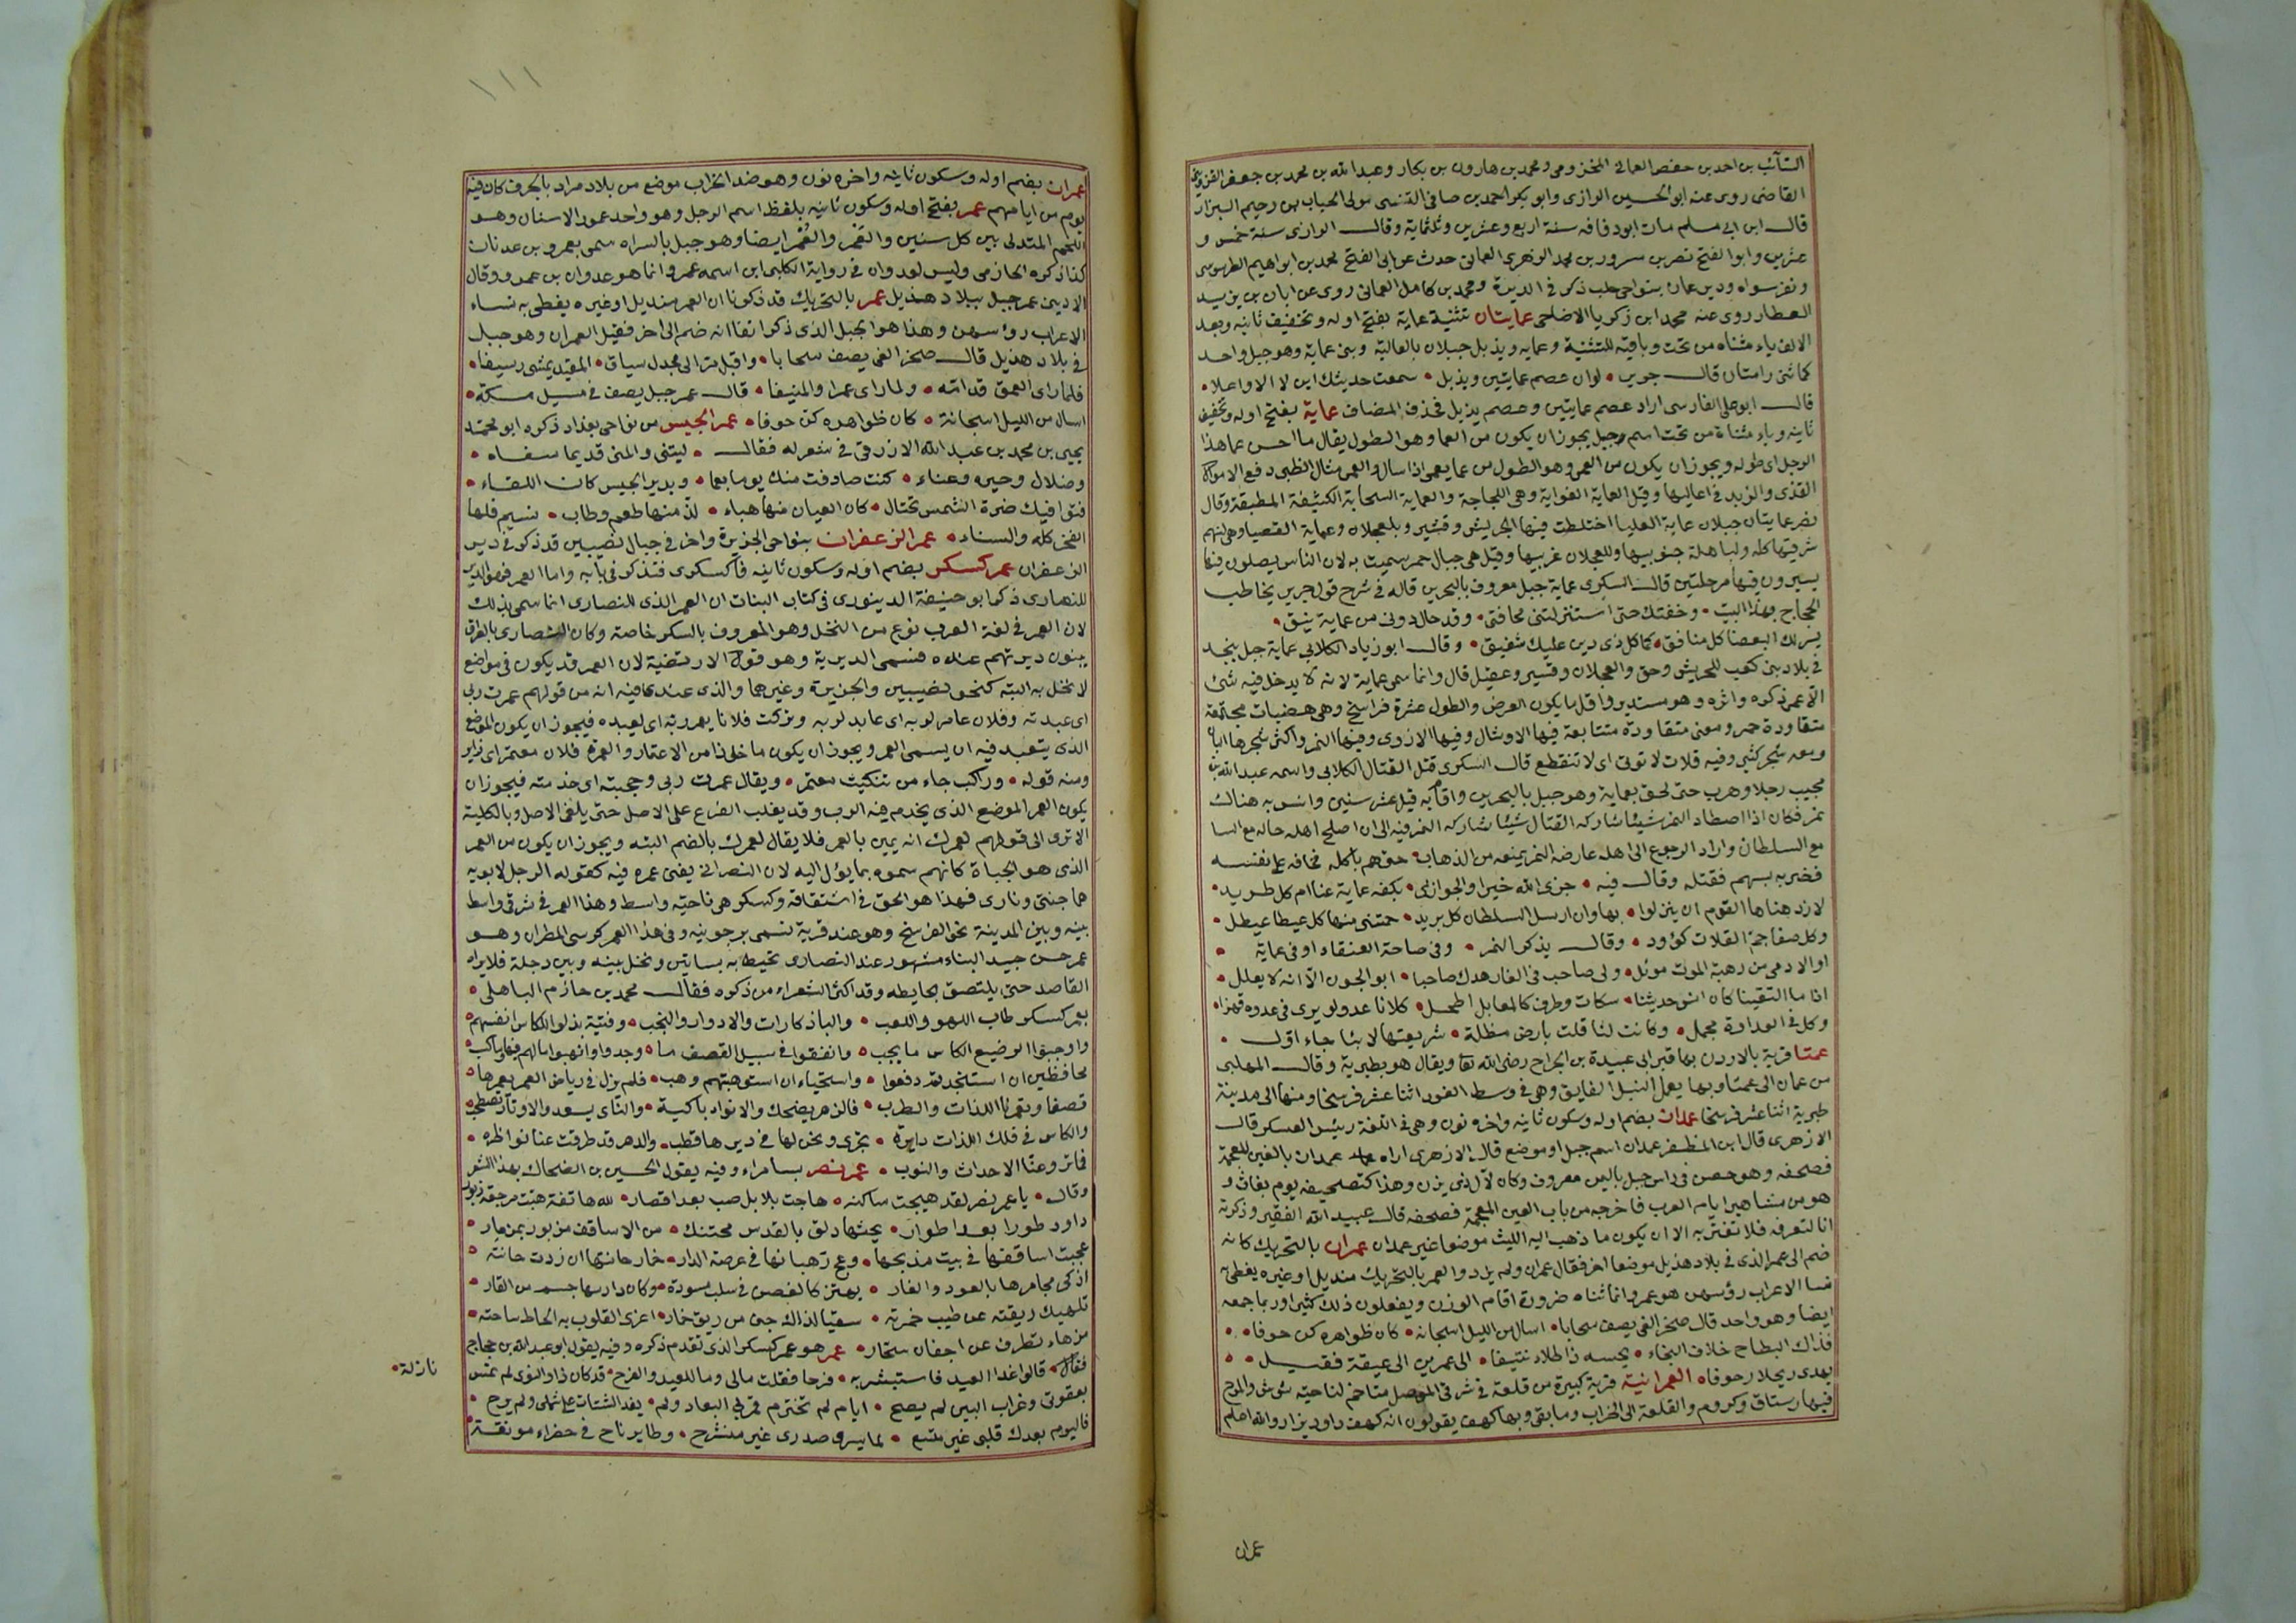 السائب بن احمد بن حفص العماني المخزومي ومحمد بن هارون بن بكار وعبد الله بن محمد بن جعفر القزويني
القاضي روى عنه ابو الحسين الرازي وابو بكر احمد بن صافي التنيسي مولى الحباب بن رحيم البزار
قال ابن ابي مسلم مات ابو دفافه سنة اربع وعشرين وثلثماية وقال الرازي سنة خمس و
عشرين وابو الفتح نصر بن مسرور بن محمد الزهري العماني حدث عن ابي الفتح محمد بن ابراهيم الطرسوسي
ونفر سواه ودير عمان بنواحي حلب ذكر في الديرة ومحمد بن كامل العماني روى عن ابان بن يزيد
العطار روى عنه محمد ابن زكريا الاضاخي عمايتان تثنية عماية بفتح اوله وتخفيف ثانيه وبعد
الالف ياء مثناه من تحت وباقيه للتثنية وعمايه ويذبل جبلان بالعالية وثنى عماية وهو جبل واحد
كما ثنى رامتان قال جرير • لوان عصم عمايتين ويذبل • سمعت حديثك اين لا الاوعلا •
قال ابو علي الفارسي اراد عصم عمايتين وعصم يذبل فحذف المضاف عماية بفتح اوله وتخفيف
ثانيه وياء مثناة من تحت اسم جبل يجوز ان يكون من العما وهو الطول يقال ما احسن عما هذا
الرجل اي طوله ويجوز ان يكون من العمى وهو الطول من عما يعمى اذا سال والعمى مثال الظبى دفع الامواج
القذى والزبد في اعاليها وقيل العماية الغواية وهي اللجاجة والعماية السحابة الكثيفة المطبقة وقال
نصر عمايتان جبلان عماية العليا اختلطت فيها الحريش وقشير وبلعجلان وعماية القصيا وهي لهم
شرقيها كله ولباهلة جنوبيها وللعجلان غربيها وقيل هي جبال حمر سميت به لان الناس يضلون فيها
يسيرون فيها مرحلتين قال السكري عماية جبل معروف بالبحرين قاله في شرح قول جرير يخاطب
الحجاج بهذا البيت • وخفتك حتى استنزلتني مخافتي • وقد حال دوني من عماية نيق •
يسر لك البغضا كل منافق • كما كل ذي دين عليك شفيق • وقال ابو زياد الكلابي عماية جبل بنجد
في بلاد بني كعب للحريش وحق والعجلان وقشير وعقيل قال وانما سمي عماية لانه لا يدخل فيه شئ
الا عمي ذكره واثره وهو مستدير واقل ما يكون العرض والطول عشرة فراسخ وهي هضبات مجتمعة
متقاودة حمر ومعنى متقاودة متتابعة فيها الاوشال وفيها الاروى وفيها النمر واكثر شجرها البان
ومعه شجر كثير وفيه قلات لا تؤتى اي لا تنقطع قال السكري قتل القتال الكلابي واسمه عبد الله بن
مجيب رجلا وهرب حتى لحق بعماية وهو جبل بالبحرين واقام به قيل عشر سنين وانس به هنالك
نمر فكان اذا اصطاد النمر شيئا شاركه القتال شيئا شاركه النمر فيه الى ان اصلح اهله حاله مع السا
مع السلطان واراد الرجوع الى اهله عارضه النمر يمنعه من الذهاب حتى هم باكله فخافه على نفسه
فضربه بسهم فقتله وقال فيه • جزى الله خيرا والجوازي • بكفه عماية عنا ام كل طريد •
لازدهناها القوم ان ينزلوا • بها وان ارسل السلطان كل بريد • حمتني منها كل عيطا عيطل •
وكل صفا جم القلات كؤود • وقال يذكر النمر • وفي صاحة العنقاء او في عماية •
او الادمى من رهبة الموت موئل • ولي صاحب في الغار هدك صاحبا • ابو الجون الا انه لا يعلل •
اذا ما التقينا كان انس حديثنا • سكات وطرف كالمعابل اطحل • كلانا عدو لو يرى في عدوه مهزا •
وكل في العداوة مجمل • وكانت لنا قلت بارض مظلة • شريعتها لاينا جاء اول •
عمتا قرية بالاردن بها قبر ابي عبيدة بن الجراح رضي الله تعا ويقال هو بطبرية وقال المهلبي
من عمان الى عمتا وبها يعمل النبل الفايق وهي في وسط الغور اثنا عشر فرسخا ومنها الى مدينة
طبرية اثنا عشر فرسخا عمدان بضم اوله وسكون ثانيه واخره نون وهي في اللغة رئيس العسكر قال
الازهري قال ابن المظفر عمدان اسم جبل او موضع قال الازهري اراه عمدان بالغين المعجمة
فصحفه وهو حصن في راس جبل باليمن معروف وكان لآل ذي يزن وهذا كتصحيفه يوم بغاث و
هو من مشاهير ايام العرب فاخرجه من باب العين المعجمة فصحفه قال عبيد الله الفقير وذكرته
انا لتعرفه فلا تغتر به الا ان يكون ما ذهب اليه الليث موضعا غير عمدان عمران بالتحريك كانه
ضم الى عمر الذي في بلاد هذيل موضعا اخر فقال عمران ولم يزد والعمر بالتحريك منديل او غيره يغطي به
نسا الاعراب رؤسهن هو عمر وانما ثناه ضرورة اقام الوزن ويفعلون ذلك كثيرا وربما جمعه
ايضا وهو واحد قال صخر الغي يصف سحابا • اسال من الليل اسجانه • كان ظواهره كن جوفا •
فذاك البطاح خلاف النجاء • يحسبه ذا طلاء نتيفا • الى عمرين الى عيقة فقيل •
يهدى ربحلا رجوفا • العمرانية قرية كبيرة من قلعة في شرقي الموصل متاخم لناحية شوش والمرج
فيها رستاق وكروم والقلعة الى الخراب وما بقي وبها كهف يقولون انه كهف داود يزار والله اعلم
عمران
١١١
عمران بضم اوله وسكون ثانيه واخره نون وهو ضد الخراب موضع من بلاد مراد بالجرف كان فيه
يوم من ايامهم عمر بفتح اوله وسكون ثانيه بلفظ اسم الرجل وهو واحد عمور الاسنان وهو
اللحم المتدلي بين كل سنين والعَمر والعُمر ايضا وهو جبل بالسراه سمي بعمرو بن عدنان
كذا ذكره الحازمي وليس لعدوان في رواية الكلبي ابن اسمه عمرو انما هو عدوان بن عمرو وقال
الاديبي عمر جبل ببلاد هذيل عمر بالتحريك قد ذكرنا ان العمر منديل او غيره يغطي به نساء
الاعراب رؤسهن وهذا هو الجبل الذي ذكر انفا انه ضم الى اخر فقيل العمران وهو جبل
في بلاد هذيل قال صخر الغي يصف سحابا • واقبل مرا الى مجدل سياق • المقيد يمشي رسيفا •
فلما راى العمق قدامه • ولما راى عمرا والمنيفا • قال عمر جبل يصف في مسيل مكة •
اسال من الليل اسجانه • كان ظواهره كن جوفا • عمر الجيس من نواحي بغداد ذكره ابو محمد
يحيى بن محمد بن عبد الله الازرقي في شعر له فقال • ليتني والمنى قديما سفاه •
وضلال وحيره وعناء • كنت صادفت منك يوما بعما • وبدير الجيس كان اللقاء •
فتوافيك ضرة الشمس تختال • كان العيان منها هباء • لذ منها طعم وطاب • نسيم فلها
الفخر كله والسناء • عمر الزعفران بنواحي الجزيرة واخر في جبال نصيبين قد ذكر في دير
الزعفران عمر كسكر بضم اوله وسكون ثانيه فاكسكرى فتذكر في بابه واما العمر فهو الدير
للنصارى ذكر ابو حنيفة الدينوري في كتاب النبات ان العمر الذي للنصارى انما سمي بذلك
لان العمر في لغة العرب نوع من النخل وهو المعروف بالسكر خاصة وكان النصارى بالعراق
يبنون ديرتهم عنده فسمى الدير به وهو قول لا ارتضيه لان العمر قد يكون في مواضع
لا نخل به البته كنحو نصيبين والجزيرة وغيرهما والذي عندي فيه انه من قولهم عمرت ربي
اى عبدته وفلان عامر لربه اى عابد لربه وتركت فلانا يعمر ربه اى يعبده فيجوز ان يكون الموضع
الذى يتعبد فيه ان يسمى العمر ويجوز ان يكون ماخوذا من الاعتمار والعمرة فلان معتمر اى زاير
ومنه قوله • وراكب جاء من تثليث معتمر • ويقال عمرت ربي وحججته اى خدمته فيجوز ان
يكون العمر الموضع الذي يخدم فيه الرب وقد يغلب الفرع على الاصل حتى يلغى الاصل وبالكلية
الا ترى الى قولهم لعمرك انه يمين بالعمر فلا يقال لعمرك بالضم البته ويجوز ان يكون من العمر
الذى هو الحياة كانهم سموه بما يؤل اليه لان النصراني يفنى عمره فيه كقوله الرجل لابويه
هما جنتي ونارى فهذا هو الحق في اشتقاقه وكسكر هي ناحية واسط وهذا العمر في شرقي واسط
بينه وبين المدينة نحو الفرسخ وهو عند قرية تسمى برجونيه وفي هذا العمر كرسي المطران وهو
عمر حسن جيد البناء مشهور عند النصارى تحيط به بساتين ونخل بينه وبين دجلة فلا يراه
القاصد حتى يلتصق بحايطه وقد اكثر الشعراء من ذكره فقال محمد بن حازم الباهلي •
بعمر كسكر طاب اللهو واللعب • والباذكارات والادوار والنجب • وفتية بذلوا للكاس انفسهم •
واوجبوا لرضيع الكاس ما يجب • وانفقوا في سبيل القصف ما • وجدوا وانهبوا مالهم فيها وما كسب •
محافظين ان استنجدتهم دفعوا • واسخياء ان استوهبتهم وهب • فلم يزل في رياض العمر يعمرها •
قصفا وتعمرنا اللذات والطرب • فالزهر يضحك والانواء باكية • والناى يسعد والاوتار تصطخب •
والكاس في فلك اللذات دايرة • تجرى ونحن لها في ديرها قطب • والدهر قد طرفت عنا نواظره •
فما تروعنا الاحداث والنوب • عمر نصر بسامراء وفيه يقول الحسين بن الضحاك بهذا الشعر
وقال • يا عمر نصر لقد هيجت ساكنه • هاجت بلابل صب بعد اقصار • لله هاتفة هبت مرجعة زبور
داود طورا بعد اطوار • يحثها دلق بالقدس محتنك • من الاساقف مزبور بمزمار •
عجبت اساقفها في بيت مذبحها • وعج رهبانها في عرصة الدار • خمار حانتها ان زدت حانته •
اذكى مجامرها بالعود والغار • يهتز كالغصن في سلب مسودة • وكان دارسها جسم من القار •
تلهيك ريقته عن طيب خمرته • سقيا لذاك جنى من ريق خمار • اغرى القلوب به الحاظ ساحته •
مرهاء تطرف عن اجفان سحار • عمر هو عمر كسكر الذى تقدم ذكره وفيه يقول ابو عبد الله بن حجاج
فقال • قالوا غدا العيد فاستبشر به • فرحا فقلت مالي وما للعيد والفرح • قد كان ذا والنوى لم تمس
نازلة •
بعقوتي وغراب البين لم يصح • ايام لم تخترم قربي البعاد ولم • يغد الشتات على شملى ولم يرح •
فاليوم بعدك قلبي غير متسع • لما يسر وصدرى غير منشرح • وطاير ناح في خضراء مونقة •